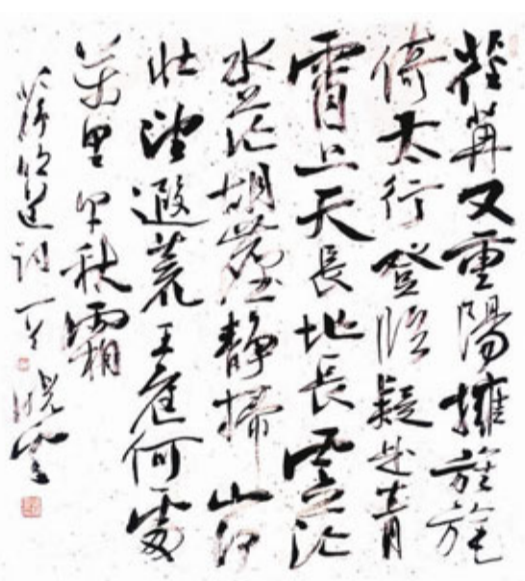 荏苒又重陽擁旌旄
倚太行登臨疑是青
霄上天長地長雲茫
水茫胡塵靜掃山河
壯望遐荒王庭何處
萬里尽秋霜
薛論道詞一首